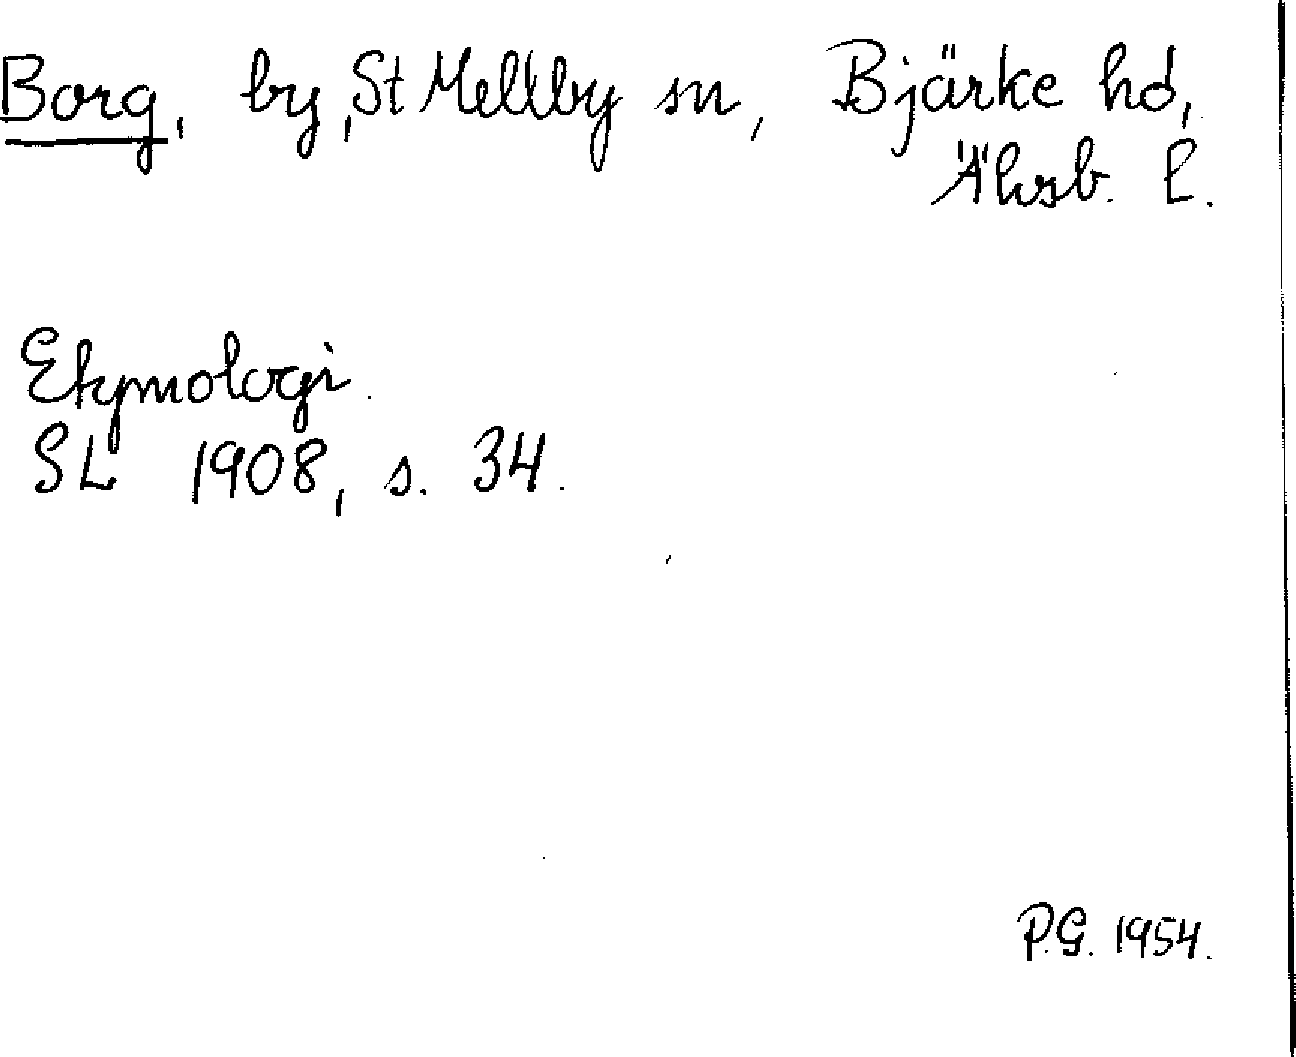 Borg, by, St Mellby sn, Bjärke hd,
Älvsb. l.
Etymologi.
SL 1908, s. 34.
P.G. 1954.